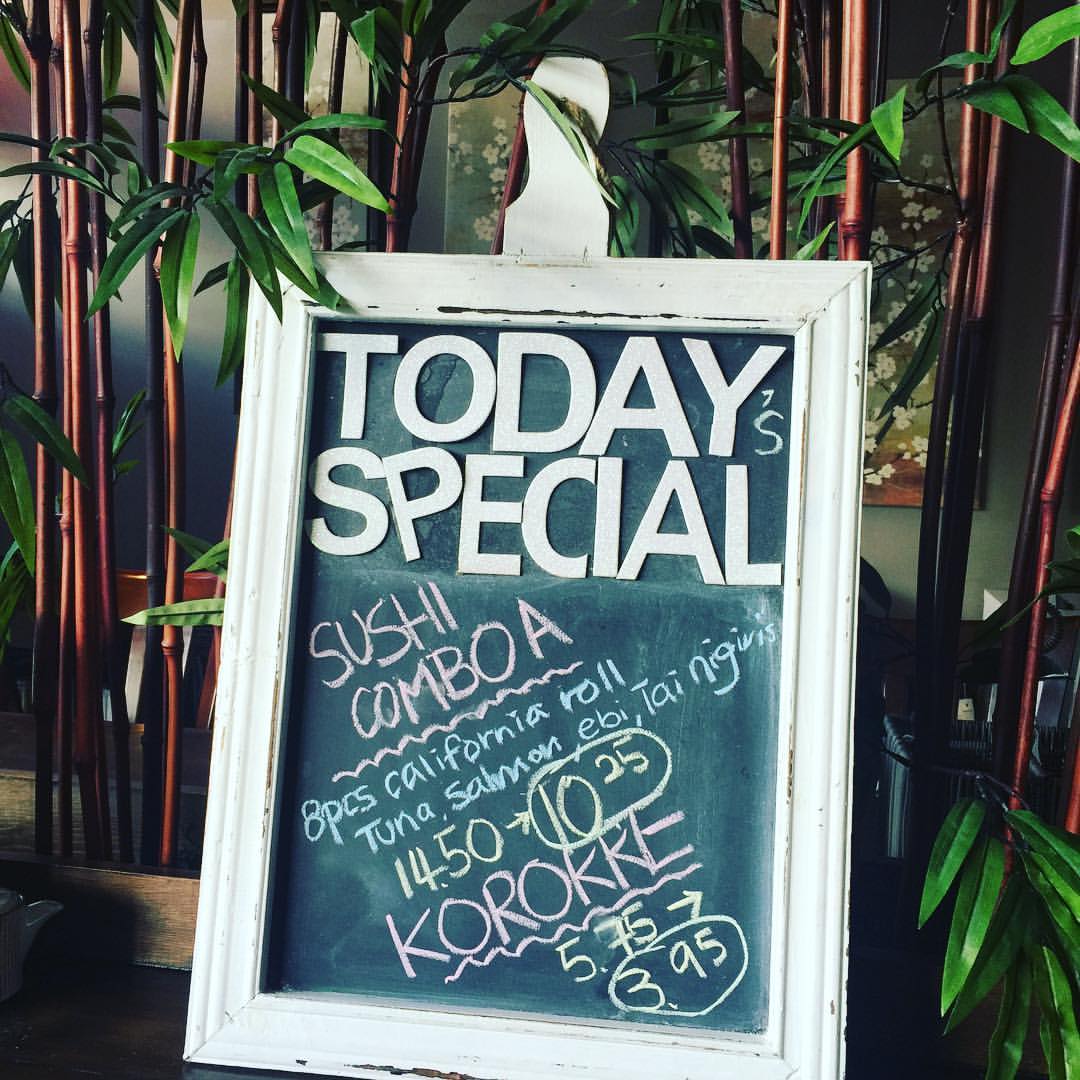 TODAY's
SPECIAL
SUSHI
COMBO A
8pcs california roll
Tuna, salmon, ebi, Tai nigiris
14.50 → 10 25
KOROKKE
5.75 →
3.95